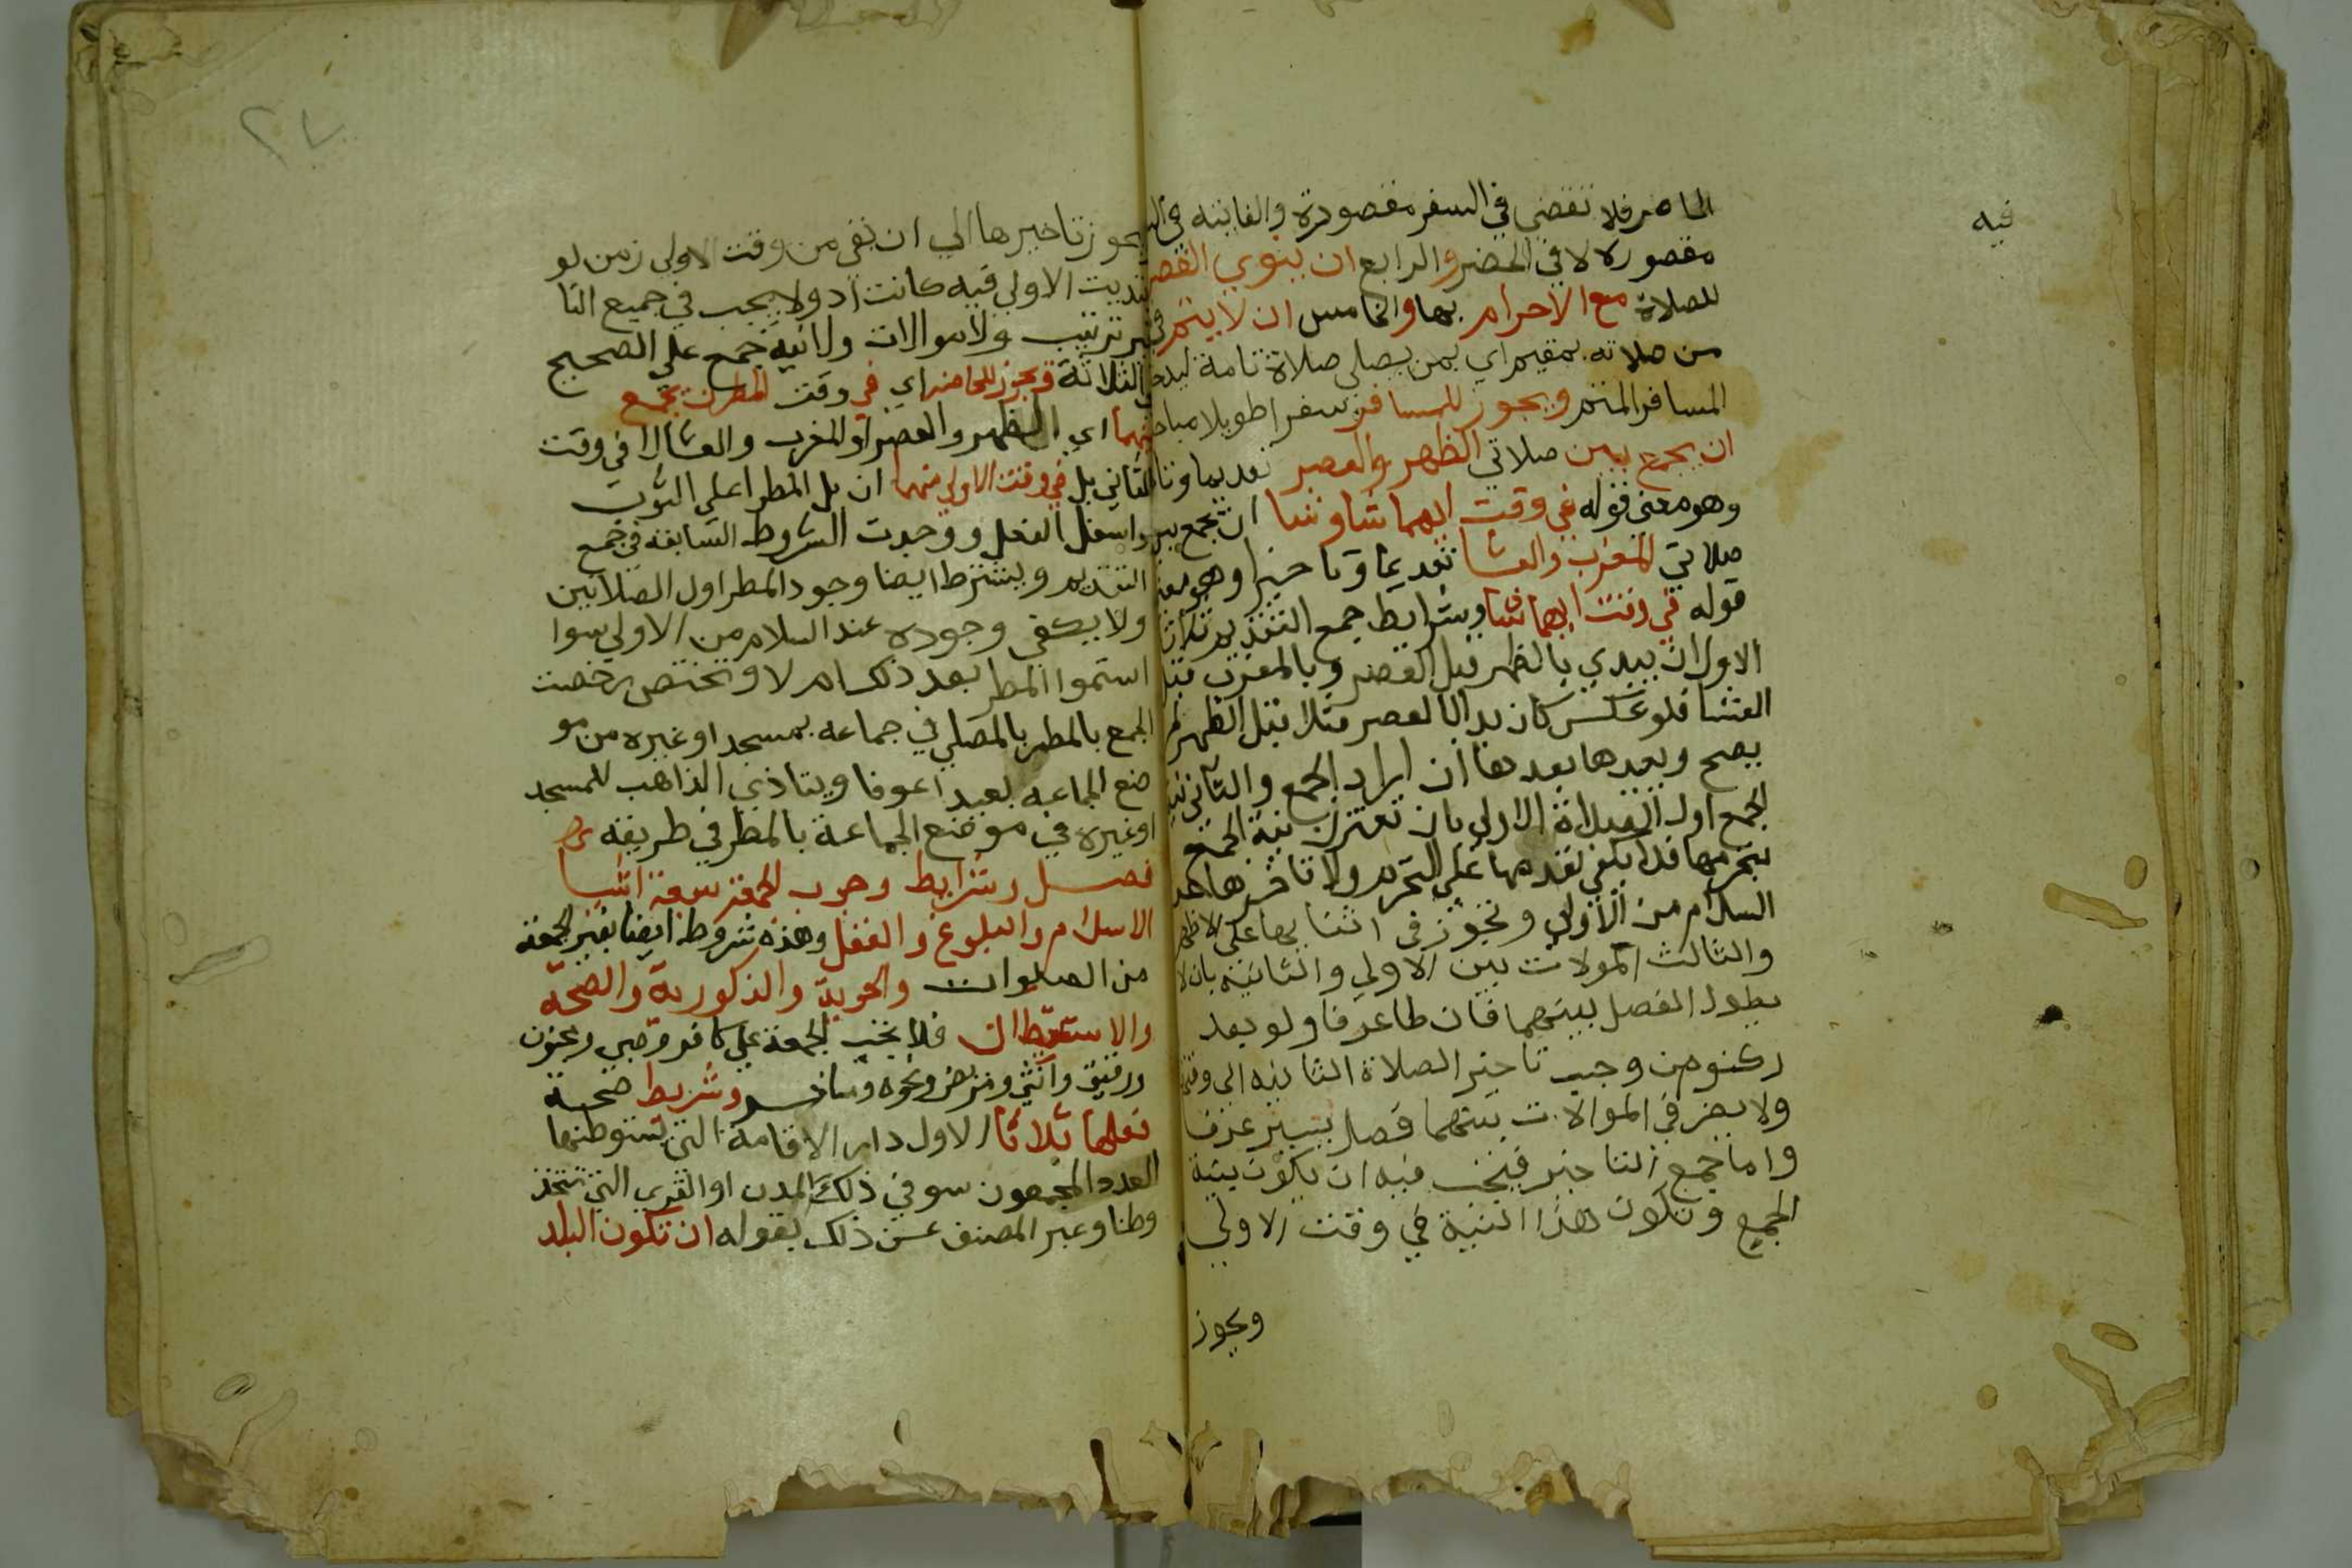 فيه
الحاضر فلا تقضي في السفر مقصورة والفايته في
مقصوره لا في الحضر والرابع ان ينوي القصر
للصلاة مع الاحرام بها والخامس ان لا يتم
من صلاته بمقيم اي بمن يصلي صلاة تامة
المسافر المتم ويجوز للمسافر سفرا طويلا مباحا
ان يجمع بين صلاتي الظهر والعصر تقديما وتا
وهو معني قوله في وقت ايهما شا و ان يجمع بين
صلاتي المغرب والعشا تقديما وتاخيرا وهو معني
قوله في وقت ايهما شا وشرايط جمع التقديم ثلاثا
الاول ان يبدي بالظهر قبل العصر وبالمغرب قبل
العشا فلو عكس كان بدا بالعصر مثلا قبل الظهر لم
يصح ويعيدها بعدها ان اراد الجمع والثاني نية
الجمع اول الصلاة الاولي بان تقترن نية الجمع
بتحرمها فلا يكفي تقديمها علي التحرم ولا تاخرها عن
السلام من الاولي وتجوز في اثنايها علي الاظهر
والثالث المولات بين الاولي والثانية بان لا
يطول الفصل بينهما فان طا عرفا ولو بعد
ركنو من وجب تاخير الصلاة الثانيه الي وقتها
ولا يضر في الموالات بينهما فصل يسير عرفا
واما جمع التاخير فيجب فيه ان يكون بنية
الجمع وتكون هذا النية في وقت الاولي
ويجوز
٢٧
يجوز تاخيرها الي ان بقي من وقت الاولي زمن لو
ابتديت الاولي فيه كانت اد ولا يجب في جميع التا
خير ترتيب ولا موالات ولا نية جمع علي الصحيح
في الثلاثة ويجوز للحاضر اي في وقت المطر ان يجمع
بينهما اي الظهر والعصر او المغرب والعشا لا في وقت
الثاني بل في وقت الاولي منهما ان بل المطر اعلي الثوب
واسفل النعل ووجدت الشروط السابقه في جمع
التقديم ويشترط ايضا وجود المطر اول الصلاتين
ولا يكفي وجوده عند السلام من الاولي سوا
استموا المطر بعد ذلك ام لا وتختص رخصت
الجمع بالمطر بالمصلي في جماعه بمسجد او غيره من مو
ضع الجماعه بعيد اعوفا ويتاذي الذاهب للمسجد
او غيره في موضع الجماعة بالمطر في طريقه
فصل وشرايط وجوب الجمعة سبعة اشيا
الاسلام والبلوغ والعقل وهذه شروط ايضا لغير الجمعة
من الصلوات والحرية والذكورية والصحة
والاستيطان فلا تجب الجمعة علي كافر وصبي ومجنون
ورقيق وانثي ومريض ونحوه ومسافر وشريط صحة
فعلها ثلاثا الاول دار الاقامة التي تستوطنها
العدد المجمعون سو في ذلك المدن او القري التي تتخذ
وطنا وعبر المصنف عن ذلك بقوله ان تكون البلد